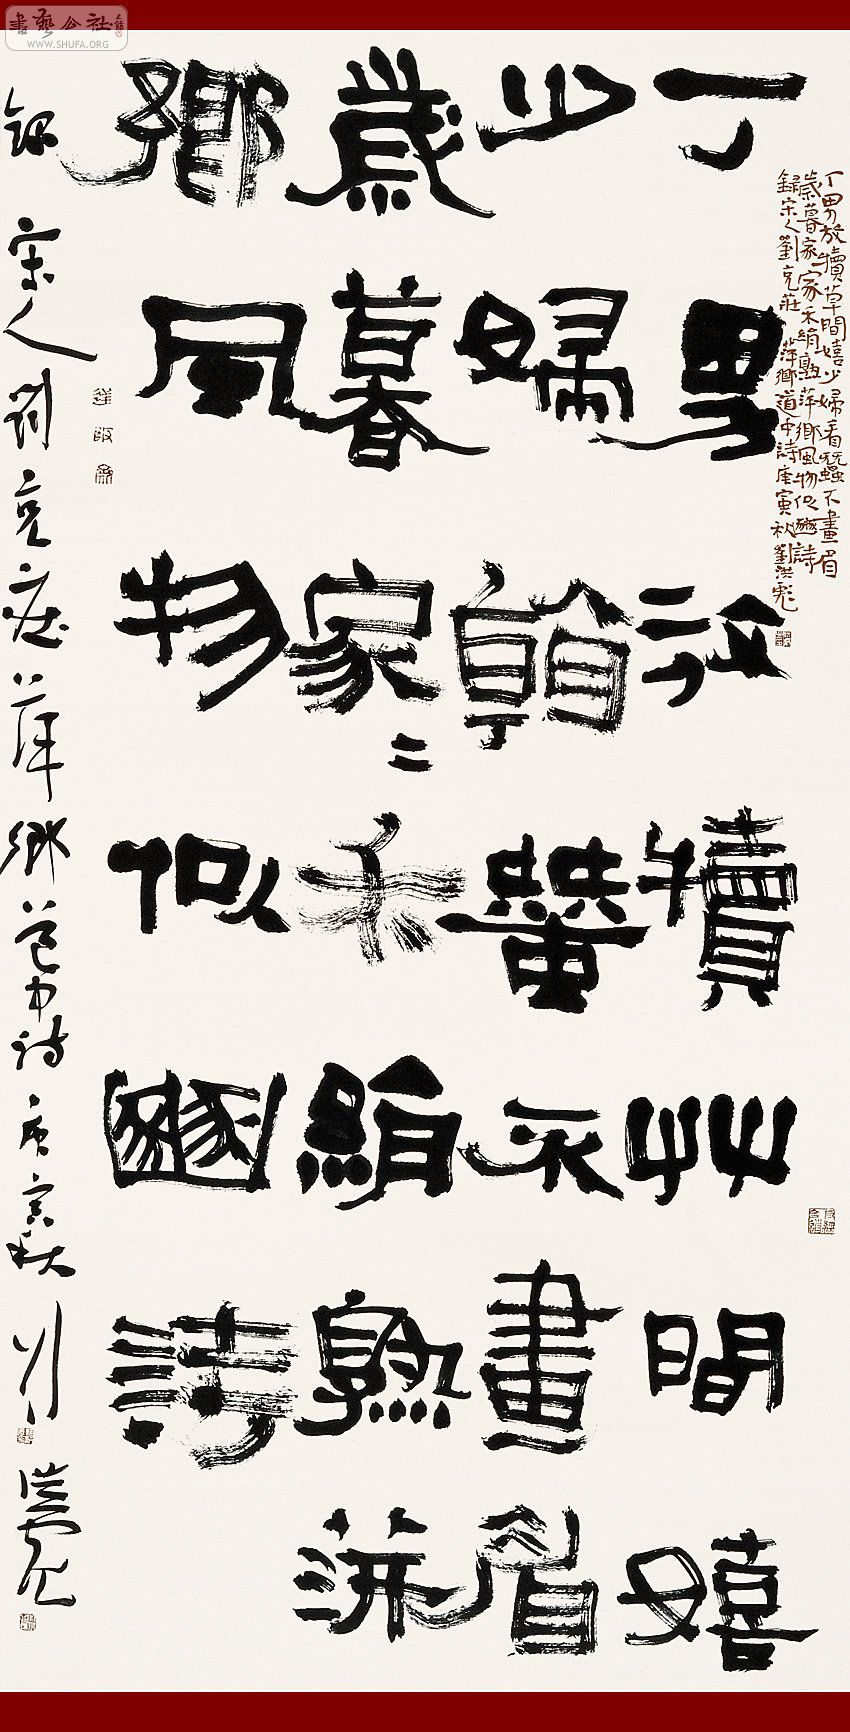 書藝公社
WWW.SHUFA.ORG
丁男放犢草間嬉少婦看蠶不畫眉
歲暮家家禾絹熟萍鄉風物似豳詩
錄宋人劉克莊 萍鄉道中詩庚寅秋劉洪彪
丁男放犢艸間嬉
少婦看蠶不畫眉
歲暮家=禾絹熟萍
鄉風物似豳詩
錄宋人劉克莊萍鄉道中詩庚寅秋劉洪彪